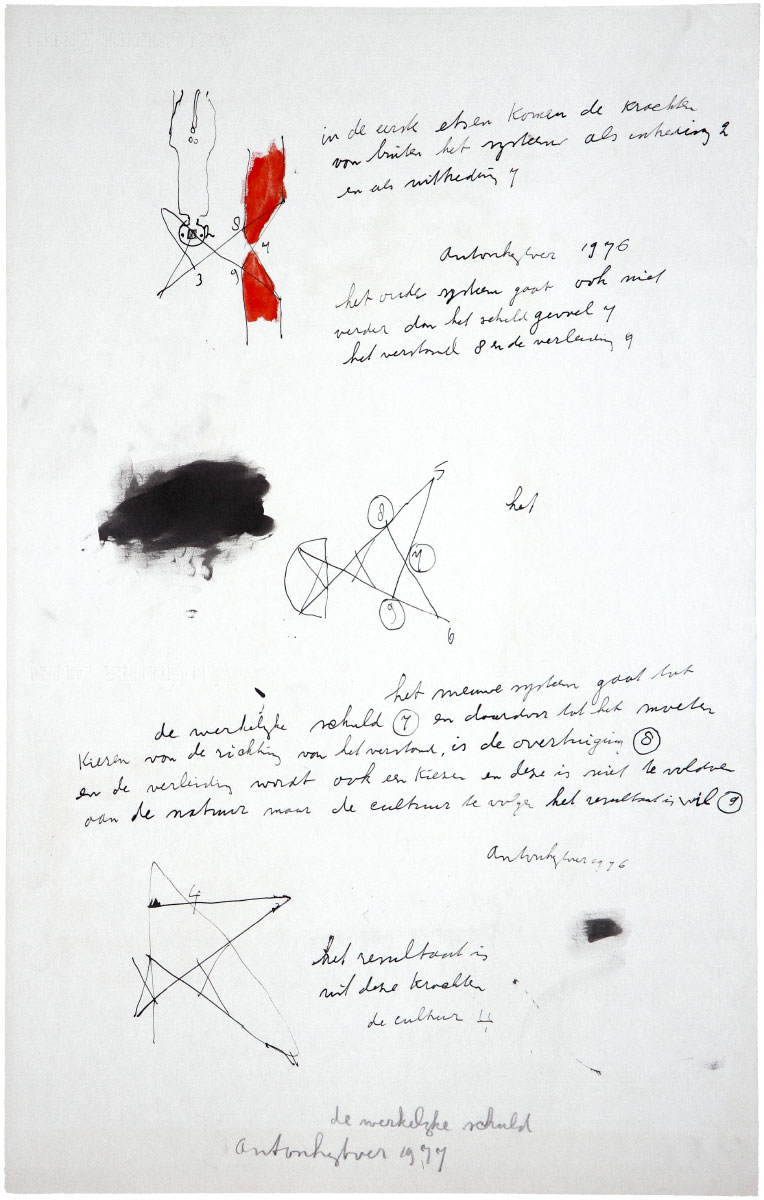 in de eerste etsen komen de krachten
van buiten het systeem als intreding 2
en als uittreding 7
8
2
7
3
9
Antonheyboer 1976
het oude systeem gaat ook niet
verder dan het schuld gevoel 7
het verstand 8 en de verleiding 9
5
8
het
7
9
6
het nieuwe systeem gaat tot
de werkelyke schuld 7 en daardoor tot het moeten
kiezen van de richting van het verstand, is de overtuiging 8
en de verleiding wordt ook een kiezen en deze is niet te voldoen
aan de natuur maar de cultuur te volgen het resultaat is wil 9
Antonheyboer 1976
4
het resultaat is
uit deze krachten
de cultuur 4
de werkelyke schuld
Antonheyboer 1977